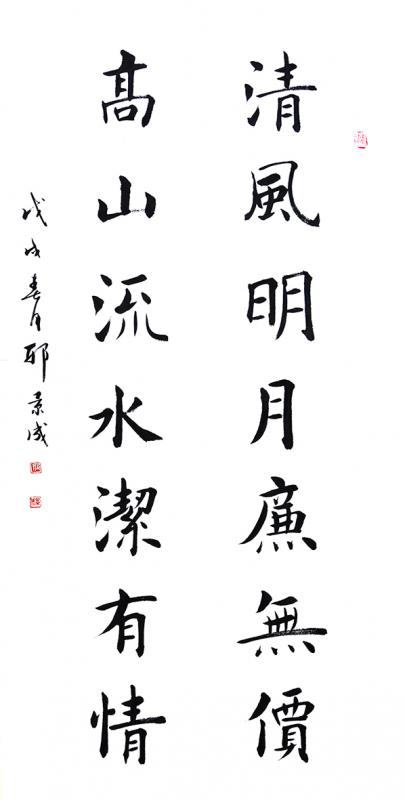 清風明月廉無價
髙山流水潔有情
戊戌春月邴景成